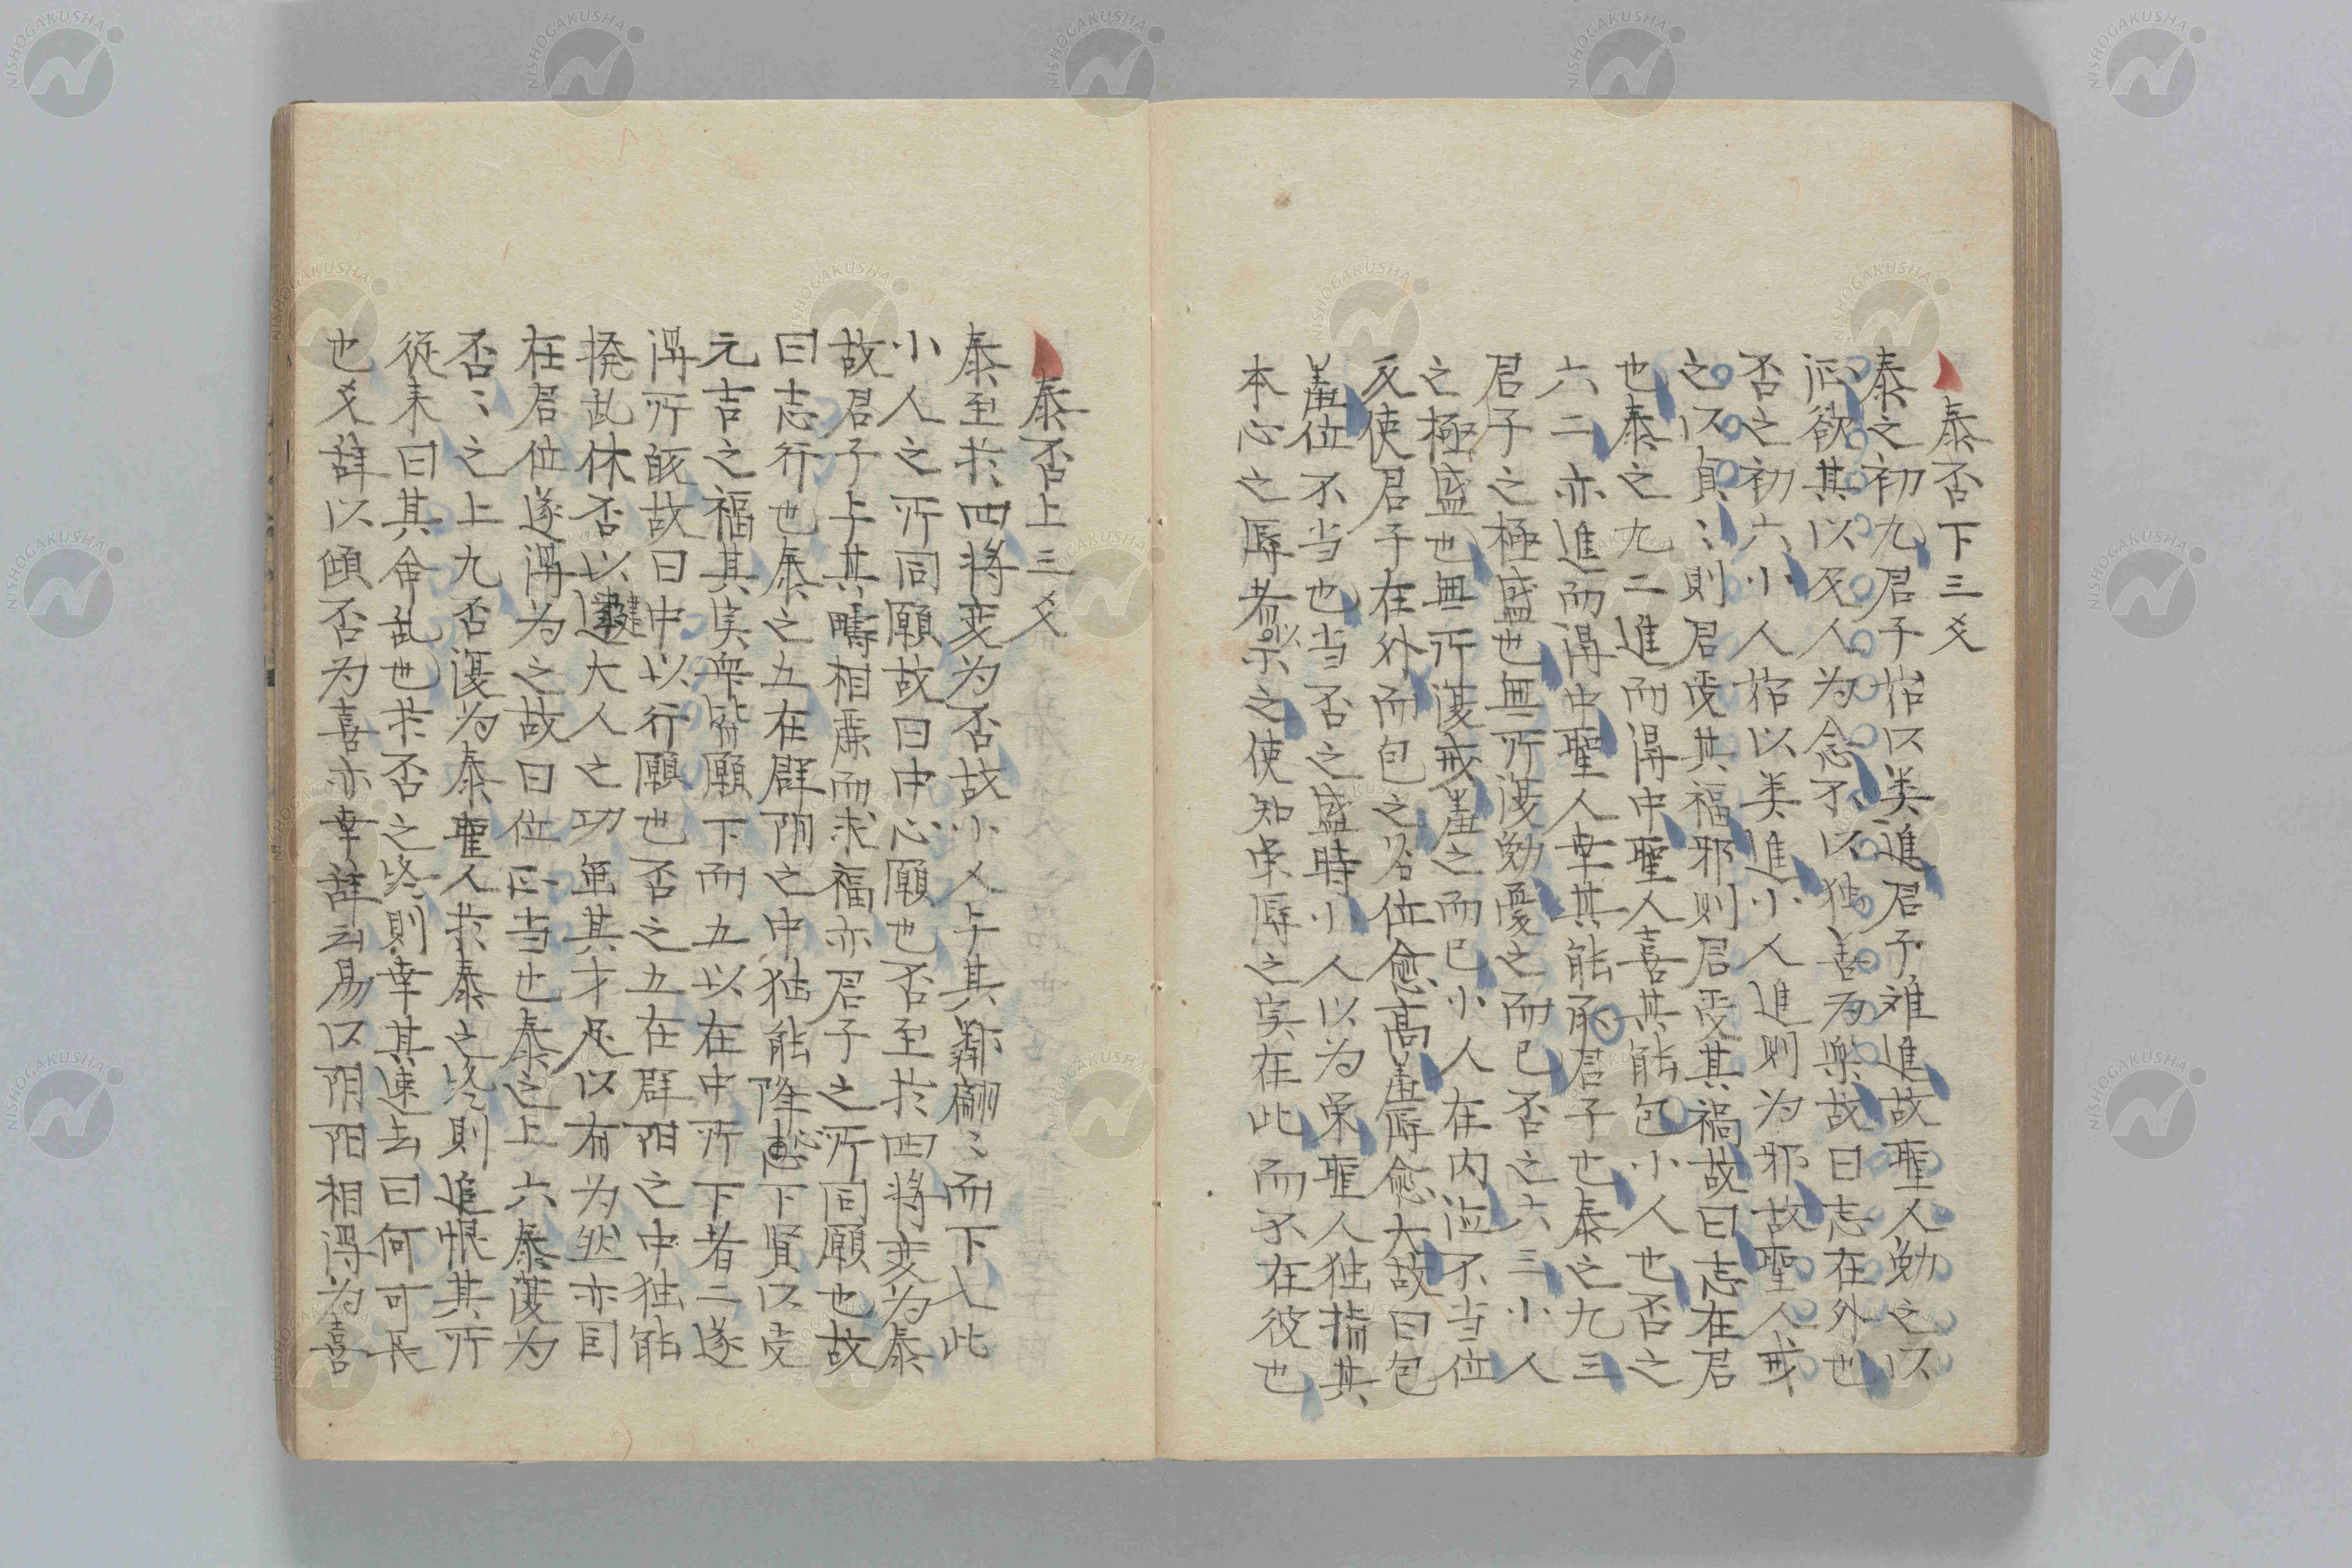 泰否下三爻
泰之初九君子始以类進君子难進故聖人勉之以
征欲其以及人为念不以独善为楽故曰志在外也
否之初六小人始以类進小人進则为邪故聖人戒
之以貞〻則君受其福邪则君受其禍故曰志在君
也泰之九二進而得中聖人喜其能包小人也否之
六二亦進而得中聖人幸其能承君子也泰之九三
君子之極盛也無所復勉憂之而已否之六三小人
之極盛也無所復戒羞之而已小人在内位不当位
反使君子在外而包之名位愈高羞辱愈大故曰包
羞位不当也当否之盛時小人以为荣聖人独指其
本心之辱者以示之使知荣辱之实在此而不在彼也
泰否上三爻
泰至於四将变为否故小人与其鄰翩〻而下此
小人之所同願故曰中心願也否至於四将变为泰
故君子与其疇相麗而求福亦君子之所同願也故
曰志行也泰之五在群阴之中独能降志下賢以受
元吉之福其实衆皆願下而五以在中所下者二遂
得所欲故曰中以行願也否之五在群阳之中独能
撥乱休否以建大人之功虽其才足以有为然亦因
在君位遂得为之故曰位正当也泰之上六泰復为
否〻之上九否復为泰聖人於泰之终則追恨其所
從来曰其命乱也於否之终則幸其速去曰何可長
也爻辞以傾否为喜亦幸辞云易以阴阳相得为喜